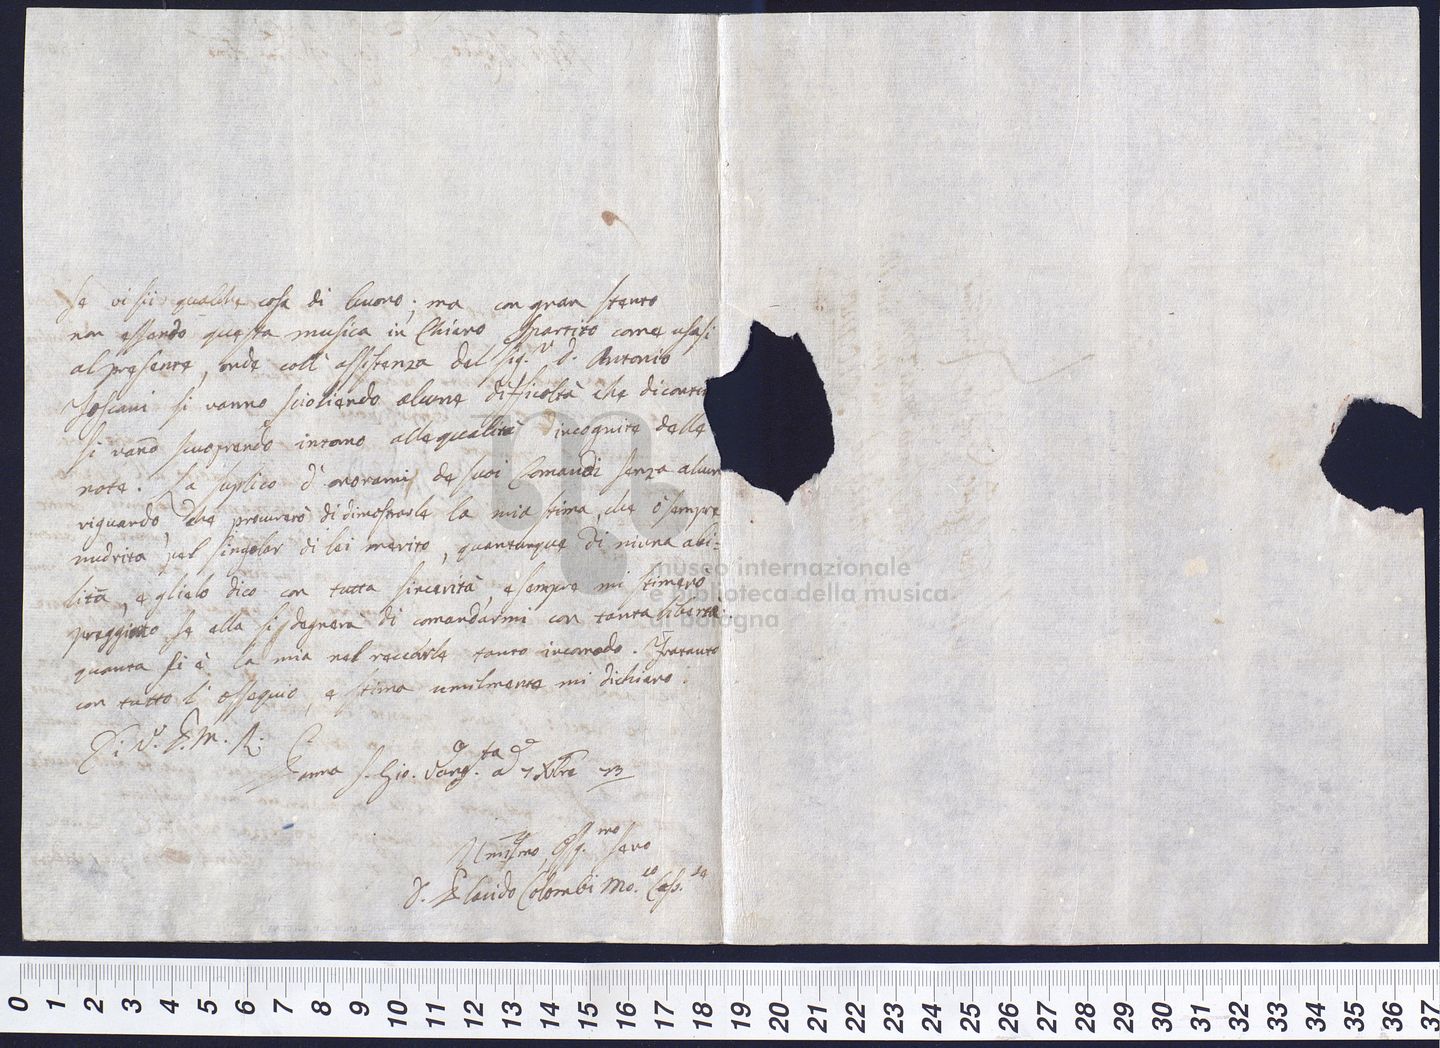 se vi sii qualche cosa di buono; ma con gran stento
non essendo questa musica in Chiaro Spartito come usasi
al presente, onde coll' assistenza del Sig.r d. Antonio
Toscani si vanno sciogliendo alcune difficoltà che di contin
si vano scuoprendo intorno alle qualità incognite delle
note. La suplico d' onorarmi de suoi Comandi senza alcun
riguardo, che procurerò di dimostrarle la mia stima, che ò sempre
nudrita pel singolar di lei merito, quantunque di niuna abi-
lità, e glielo dico con tutta sincerità, e sempre mi stimerò
preggiato se ella si degnerà di comandarmi con tanta libertà
quanta si è la mia nel reccarle tanto incomodo. Fratanto
con tutto l' ossequio, e stima umilmente mi dichiaro.
Di V. P. M. R.
Parma S. Gio. Vang.ta 7 Xbre
Umilmo, Ossq.mo Servo
D. Placido Colombi Mo.co Cass.
museo internazionale
e biblioteca della musica
di bologna
0 1 2 3 4 5 6 7 8 9 10 11 12 13 14 15 16 17 18 19 20 21 22 23 24 25 26 27 28 29 30 31 32 33 34 35 36 37